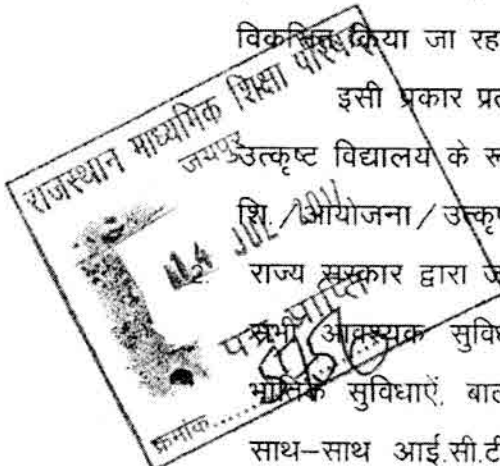 विकसित किया जा रह
इसी प्रकार प्रत
उत्कृष्ट विद्यालय के रू
शि./आयोजना/उत्कृष
2. राज्य सरकार द्वारा ज
सभी आवश्यक सुविध
भौतिक सुविधाऐं, बाल
साथ-साथ आई.सी.टी
राजस्थान माध्यमिक शिक्षा परिषद
जयपुर
पत्र प्राप्ति
क्रमांक.......